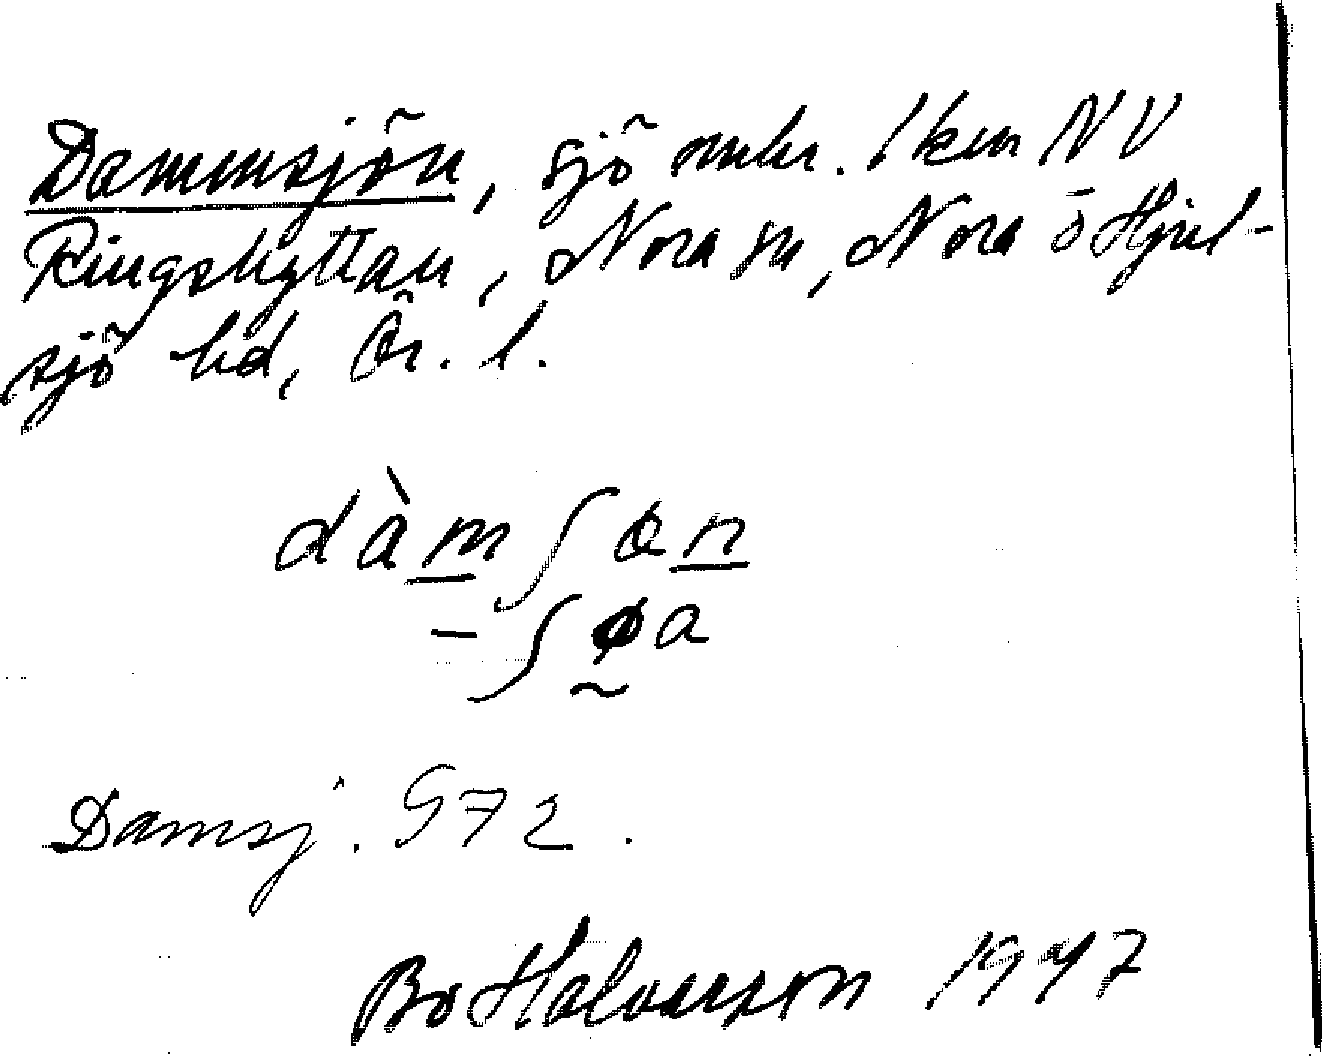 Dammsjön, sjö omkr. 1 km NV
Ringshyttan, Nora sn, Nora o Hjul-
sjö hd, Ör. l.
dàm ʃøn
– ʃøa
Damsj. G72.
Bo Halvarson 1947